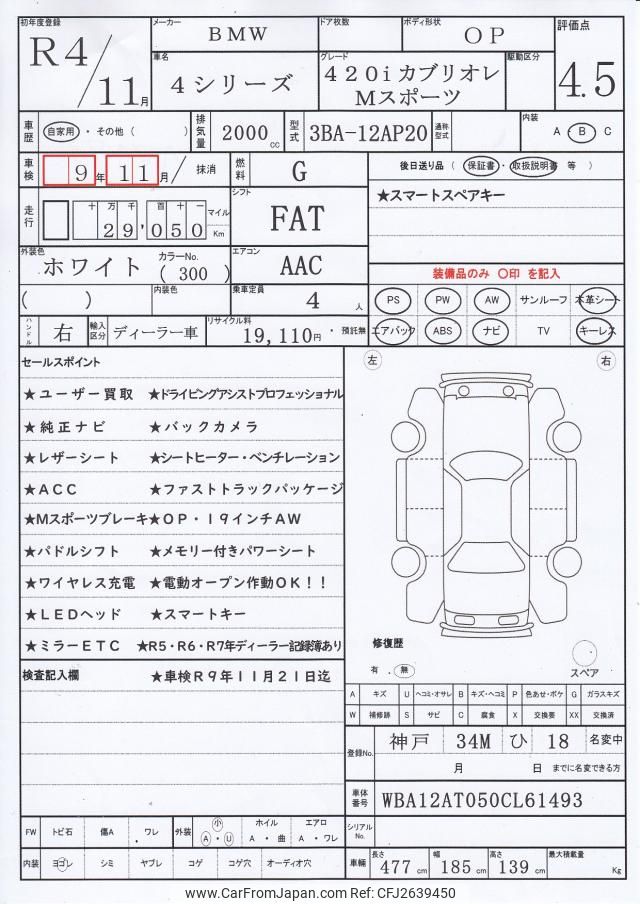 初年度登録 メーカー ドア枚数 ボディ形状 評価点
R4/11月 BMW OP 4.5
車名 グレード 駆動区分
4シリーズ 420iカブリオレ
Mスポーツ
車歴 自家用・その他( ) 排気量 2000cc 型式 3BA-12AP20 通称型式 内装 A・B・C
車検 9年11月/抹消 燃料 G 後日送り品(保証書・取扱説明書 等)
★スマートスペアキー
走行 十万千百十一 29,050 マイル Km シフト FAT
外装色 ホワイト カラーNo. (300) エアコン AAC 装備品のみ 〇印 を記入
( ) 内装色 乗車定員 4人 PS PW AW サンルーフ 本革シート
ハンドル 右 輸入区分 ディーラー車 リサイクル料 19,110円・預託無 エアバック ABS ナビ TV キーレス
セールスポイント 左 右
★ユーザー買取 ★ドライビングアシストプロフェッショナル
★純正ナビ ★バックカメラ
★レザーシート ★シートヒーター・ベンチレーション
★ACC ★ファストトラックパッケージ
★Mスポーツブレーキ★OP・19インチAW
★パドルシフト ★メモリー付きパワーシート
★ワイヤレス充電 ★電動オープン作動OK!!
★LEDヘッド ★スマートキー
★ミラーETC ★R5・R6・R7年ディーラー記録簿あり
修復歴
有 . 無 スペア
検査記入欄 ★車検R9年11月21日迄
A キズ U ヘコミ・オサレ B キズ・ヘコミ P 色あせ・ボケ G ガラスキズ
W 補修跡 S サビ C 腐食 X 交換要 XX 交換済
登録No. 神戸 34M ひ 18 名変中
月 日 までに名変できる方
車体番号 WBA12AT050CL61493
FW トビ石 傷A ・ワレ 外装 小 A・U ホイル A・曲 エアロ A・ワレ シリアルNo.
内装 ヨゴレ シミ ヤブレ コゲ コゲ穴 オーディオ穴 車輌 長さ 477cm 幅 185cm 高さ 139cm 最大積載量 Kg
www.CarFromJapan.com Ref: CFJ2639450